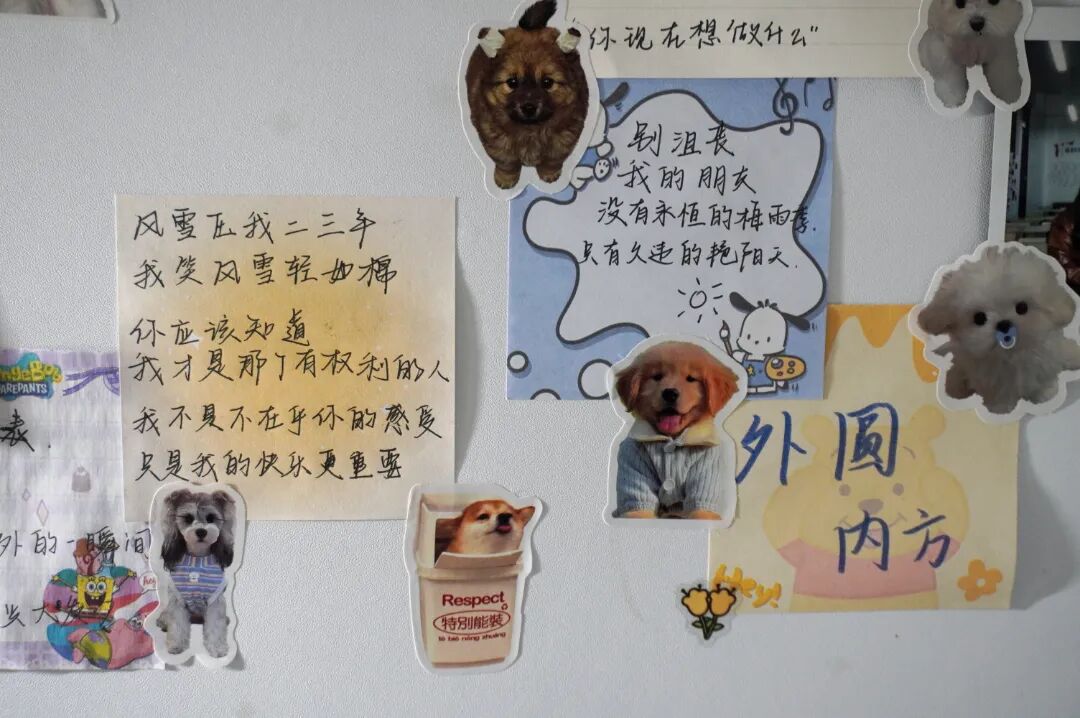 "你现在想做什么"
别沮丧
我的朋友
没有永恒的梅雨季.
只有久违的艳阳天.
风雪压我二三年
我笑风雪轻如棉
你应该知道
我才是那个有权利的人
我不是不在乎你的感受
只是我的快乐更重要
外圆
内方
Hey!
Respect
特别能装
tè bié néng zhuāng
外的一瞬间
hey